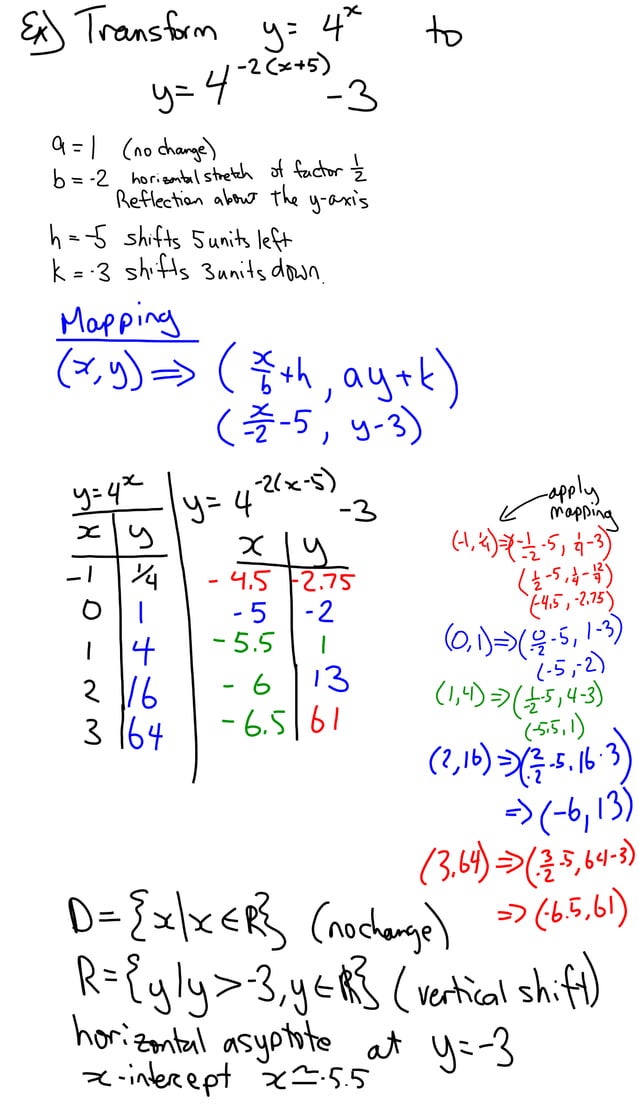 Ex) Transform y = 4^x to
y = 4^-2(x+5) -3
a = 1 (no change)
b = -2 horizontal stretch of factor 1/2
Reflection about the y-axis
h = -5 shifts 5 units left
k = -3 shifts 3 units down.
Mapping
(x, y) ⇒ (x/b + h, ay + k)
(x/-2 - 5, y - 3)
y = 4^x | y = 4^-2(x-5) -3
x | y
-1 | 1/4
0 | 1
1 | 4
2 | 16
3 | 64
x | y
-4.5 | -2.75
-5 | -2
-5.5 | 1
-6 | 13
-6.5 | 61
apply
mapping
(-1, 1/4) ⇒ (-1/-2 - 5, 1/4 - 3)
(1/2 - 5, 1/4 - 12/4)
(-4.5, -2.75)
(0, 1) ⇒ (0/-2 - 5, 1-3)
(-5, -2)
(1, 4) ⇒ (1/-2 - 5, 4-3)
(-5.5, 1)
(2, 16) ⇒ (2/-2 - 5, 16-3)
⇒ (-6, 13)
(3, 64) ⇒ (3/-2 - 5, 64-3)
⇒ (-6.5, 61)
D = {x|x ∈ R} (no change)
R = {y|y > -3, y ∈ R} (vertical shift)
horizontal asyptote at y = -3
x-intercept x ≃ -5.5